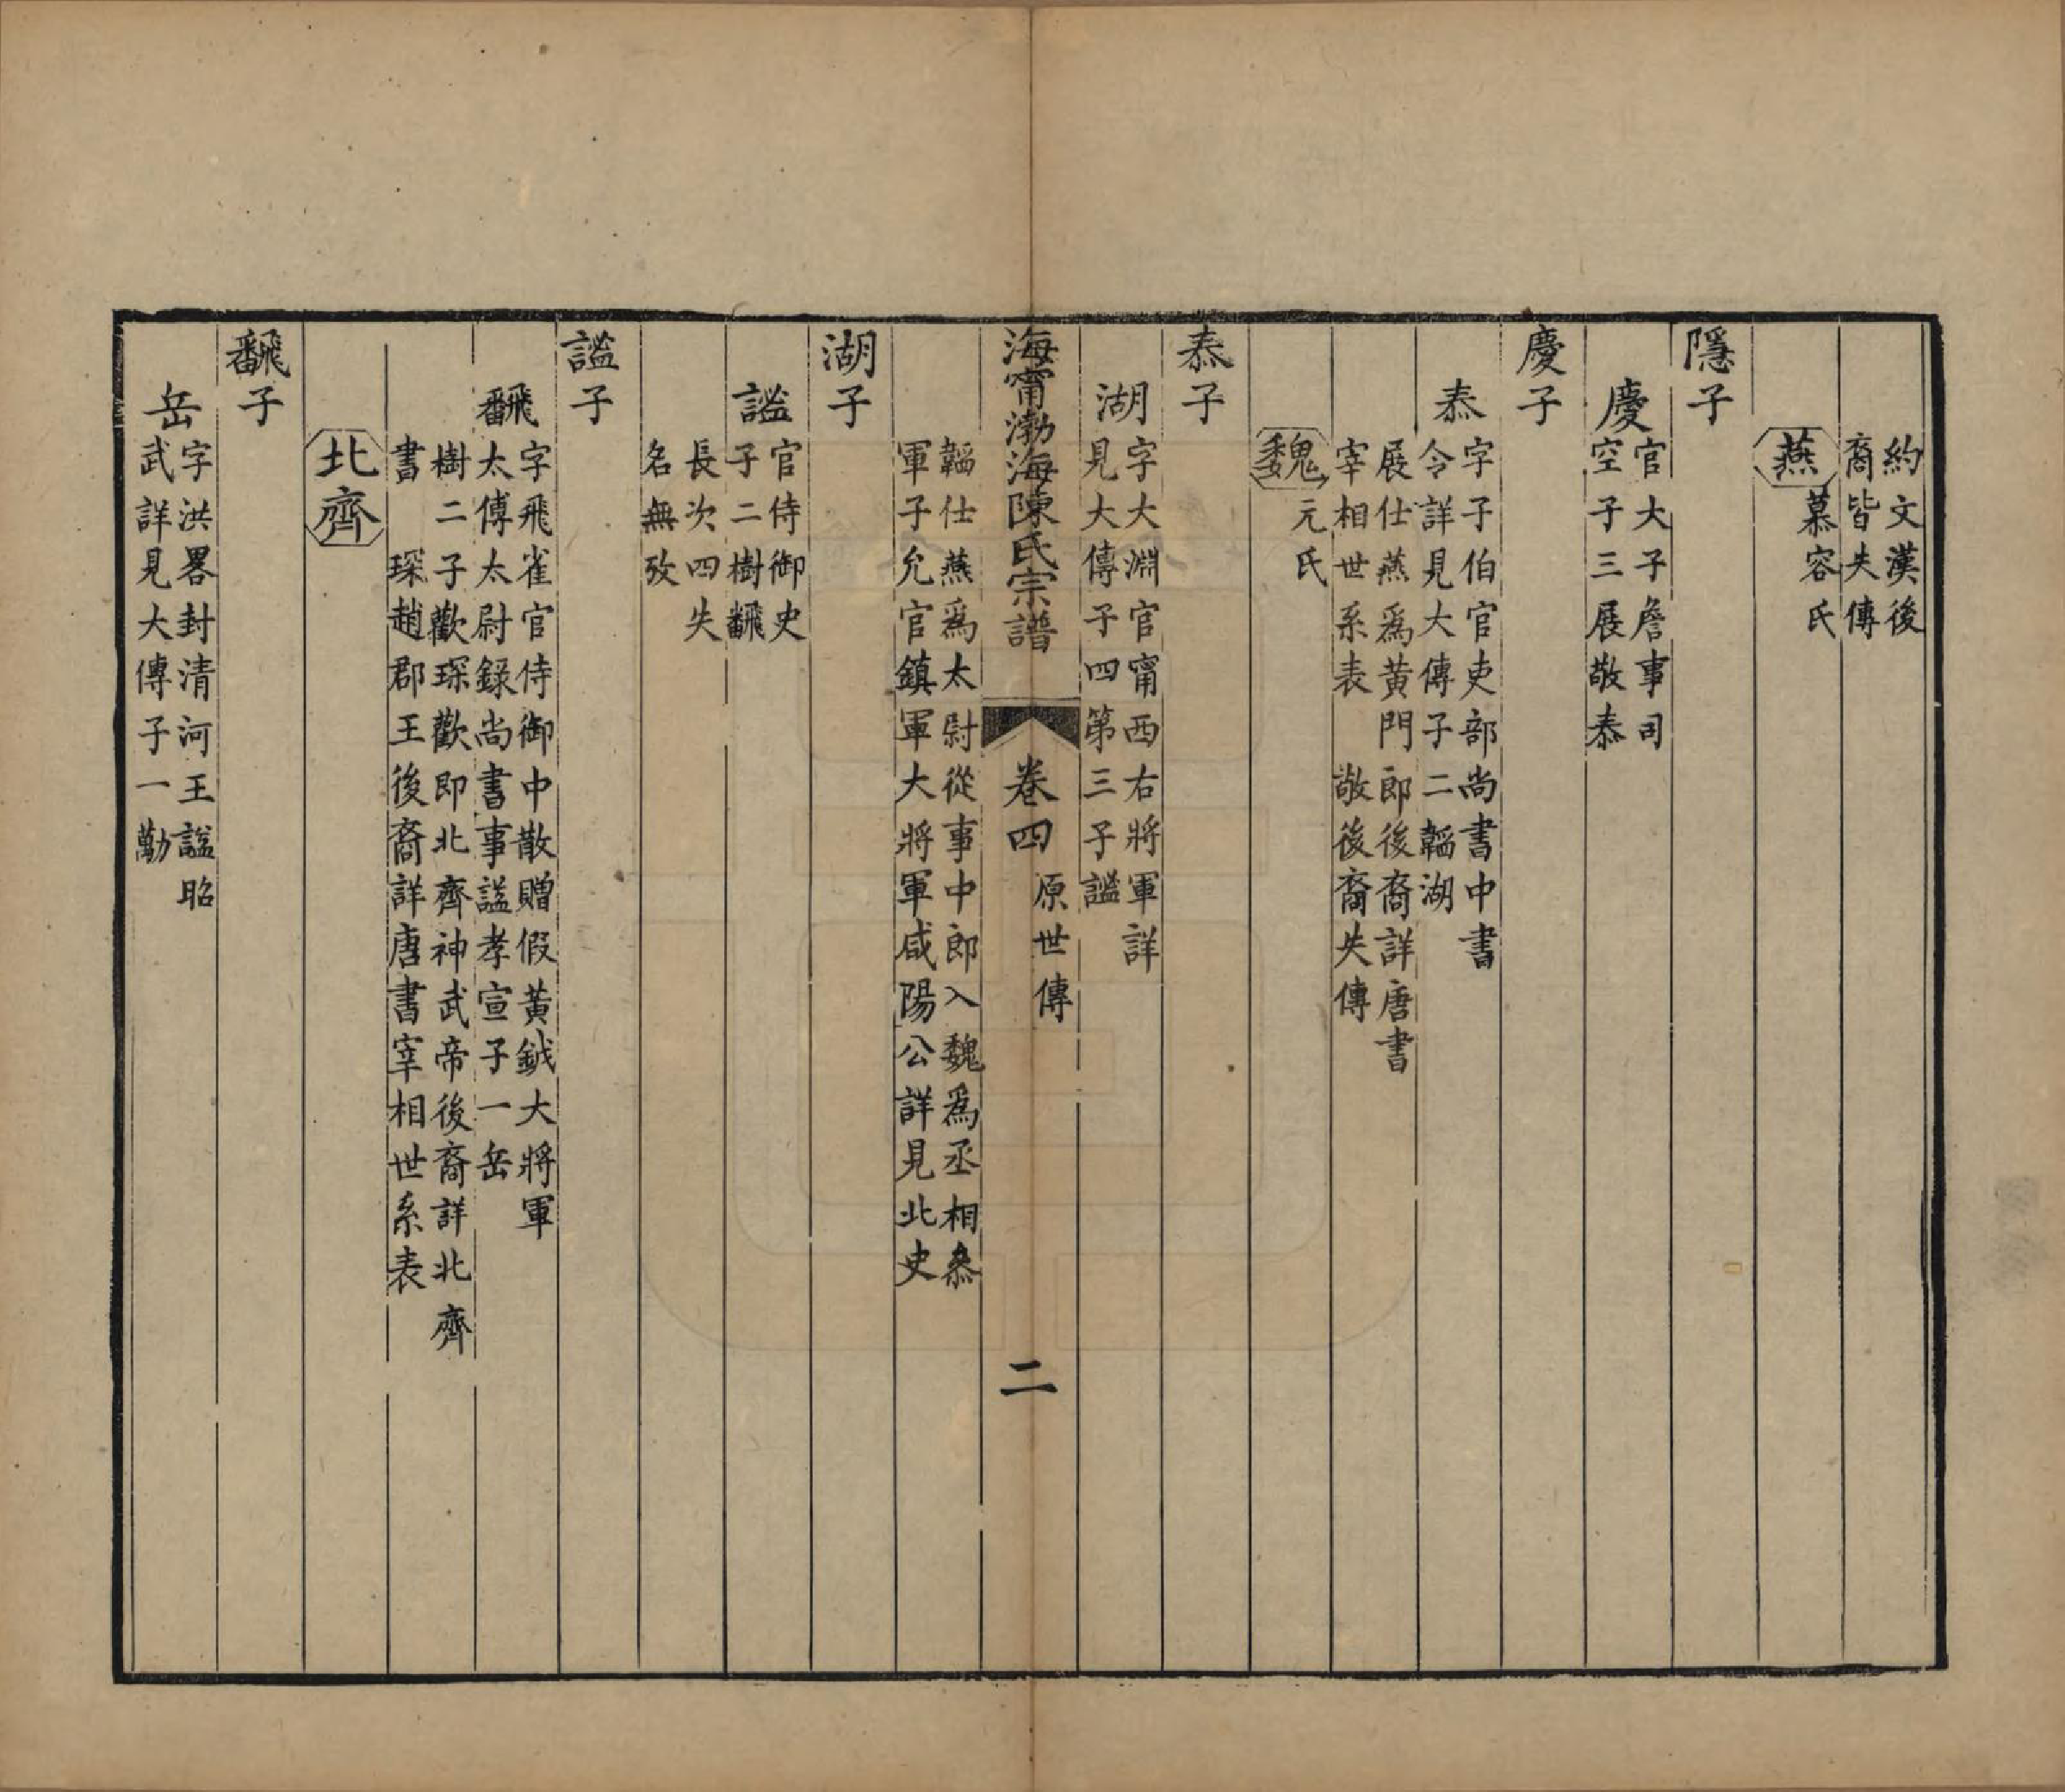 約文漢後
裔皆失傳
燕
慕容氏
隱子
慶
官大子詹事司
空子三展敬泰
慶子
泰
字子伯官吏部尚書中書
令詳見大傳子二韜湖
展仕燕爲黄門郎後裔詳唐書
宰相世系表　敬後裔失傳
魏
元氏
泰子
湖
字大淵官甯西右將軍詳
見大傳子四第三子謐
海甯渤海陳氏宗譜
卷四
原世傳
二
韜仕燕爲太尉從事中郎入魏爲丞相叅
軍子允官鎮軍大將軍咸陽公詳見北史
湖子
謐
官侍御史
子二樹飜
長次四失
名無攷
謐子
飜
字飛雀官侍御中散贈假黄鉞大將軍
太傅太尉録尚書事諡孝宣子一岳
樹二子歡琛歡即北齊神武帝後裔詳北齊
書　琛趙郡王後裔詳唐書宰相世系表
北齊
飜子
岳
字洪畧封清河王諡昭
武詳見大傳子一勱